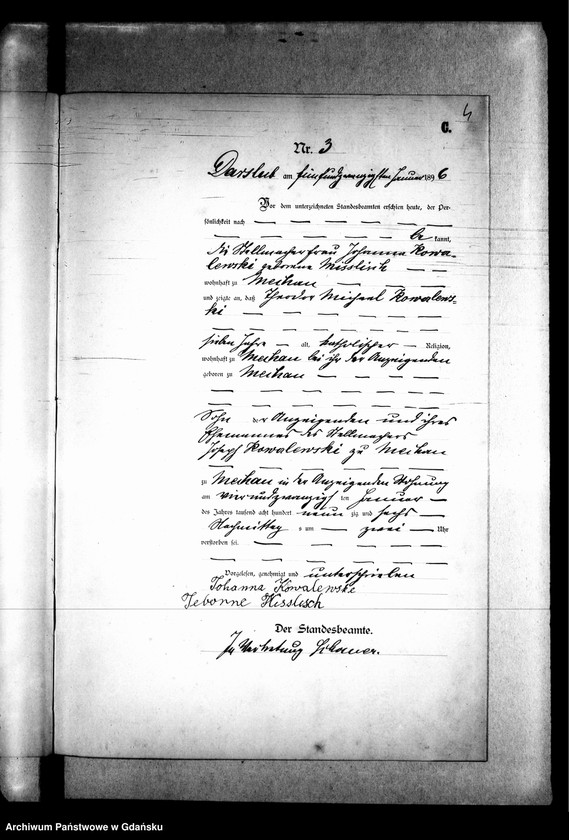 4
C.
Nr. 3
Darslub am fünfundzwanzigsten Januar 1896
Vor dem unterzeichneten Standesbeamten erschien heute, der Per-
sönlichkeit nach
be kannt,
die Stellmacherfrau Johanna Kowa-
lewski geborene
wohnhaft zu Mechau
und zeigte an, daß Theodor Michael Kowalews-
ki
sieben Jahre alt, katholischer Religion,
wohnhaft zu Mechau bei ihr der Anzeigenden
geboren zu Mechau
Sohn der Anzeigenden und ihres
Ehemannes des Stellmachers
Joseph Kowalewski zu Mechau
zu Mechau in der Anzeigenden Wohnung
am vierundzwanzigsten Januar
des Jahres tausend acht hundert neun zig und sechs
Nachmittag s um zwei Uhr
verstorben sei.
Vorgelesen, genehmigt und unterschrieben
Johanna Kowalewski
Jeborne
Der Standesbeamte.
In Vertretung
Archiwum Państwowe w Gdańsku